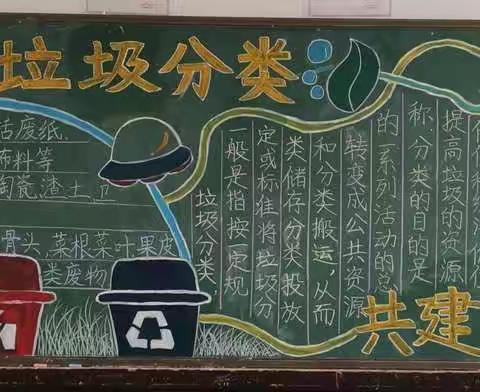 垃圾分类
活废纸、
布料等
陶瓷渣土,卫
骨头,菜根菜叶果皮
类废物
垃圾分类
一般是指按一定规
定或标准将垃圾分
类储存分类投放
和分类搬运,从而
转变成公共资源
的一系列活动的总
称,分类的目的是
提高垃圾的资源
共建